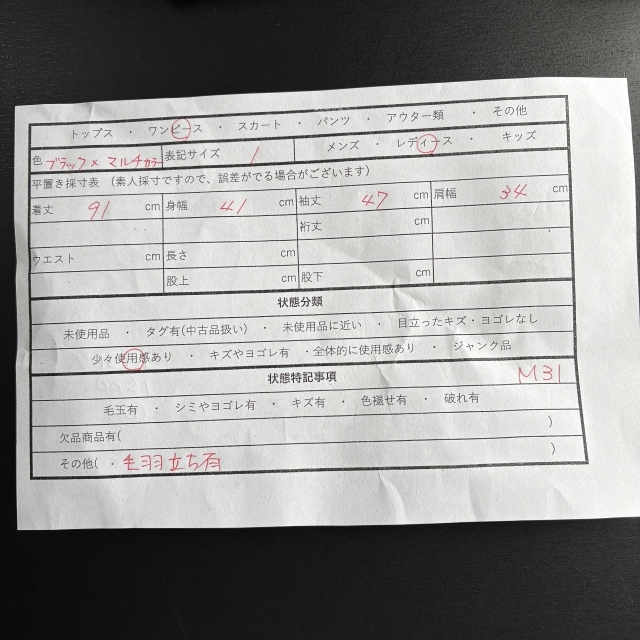 トップス ・ ワンピース ・ スカート ・ パンツ ・ アウター類 ・ その他
色 ブラック× マルチカラー 表記サイズ 1 メンズ ・ レディース ・ キッズ
平置き採寸表 （素人採寸ですので、誤差がでる場合がございます）
着丈 91 cm 身幅 41 cm 袖丈 47 cm 肩幅 34 cm
裄丈 cm
ウエスト cm 長さ cm
股上 cm 股下 cm
状態分類
未使用品 ・ タグ有(中古品扱い) ・ 未使用品に近い ・ 目立ったキズ・ヨゴレなし
少々使用感あり ・ キズやヨゴレ有 ・全体的に使用感あり ・ ジャンク品
状態特記事項 M31
毛玉有 ・ シミやヨゴレ有 ・ キズ有 ・ 色褪せ有 ・ 破れ有
欠品商品有( )
その他( ・毛羽立ち有 )